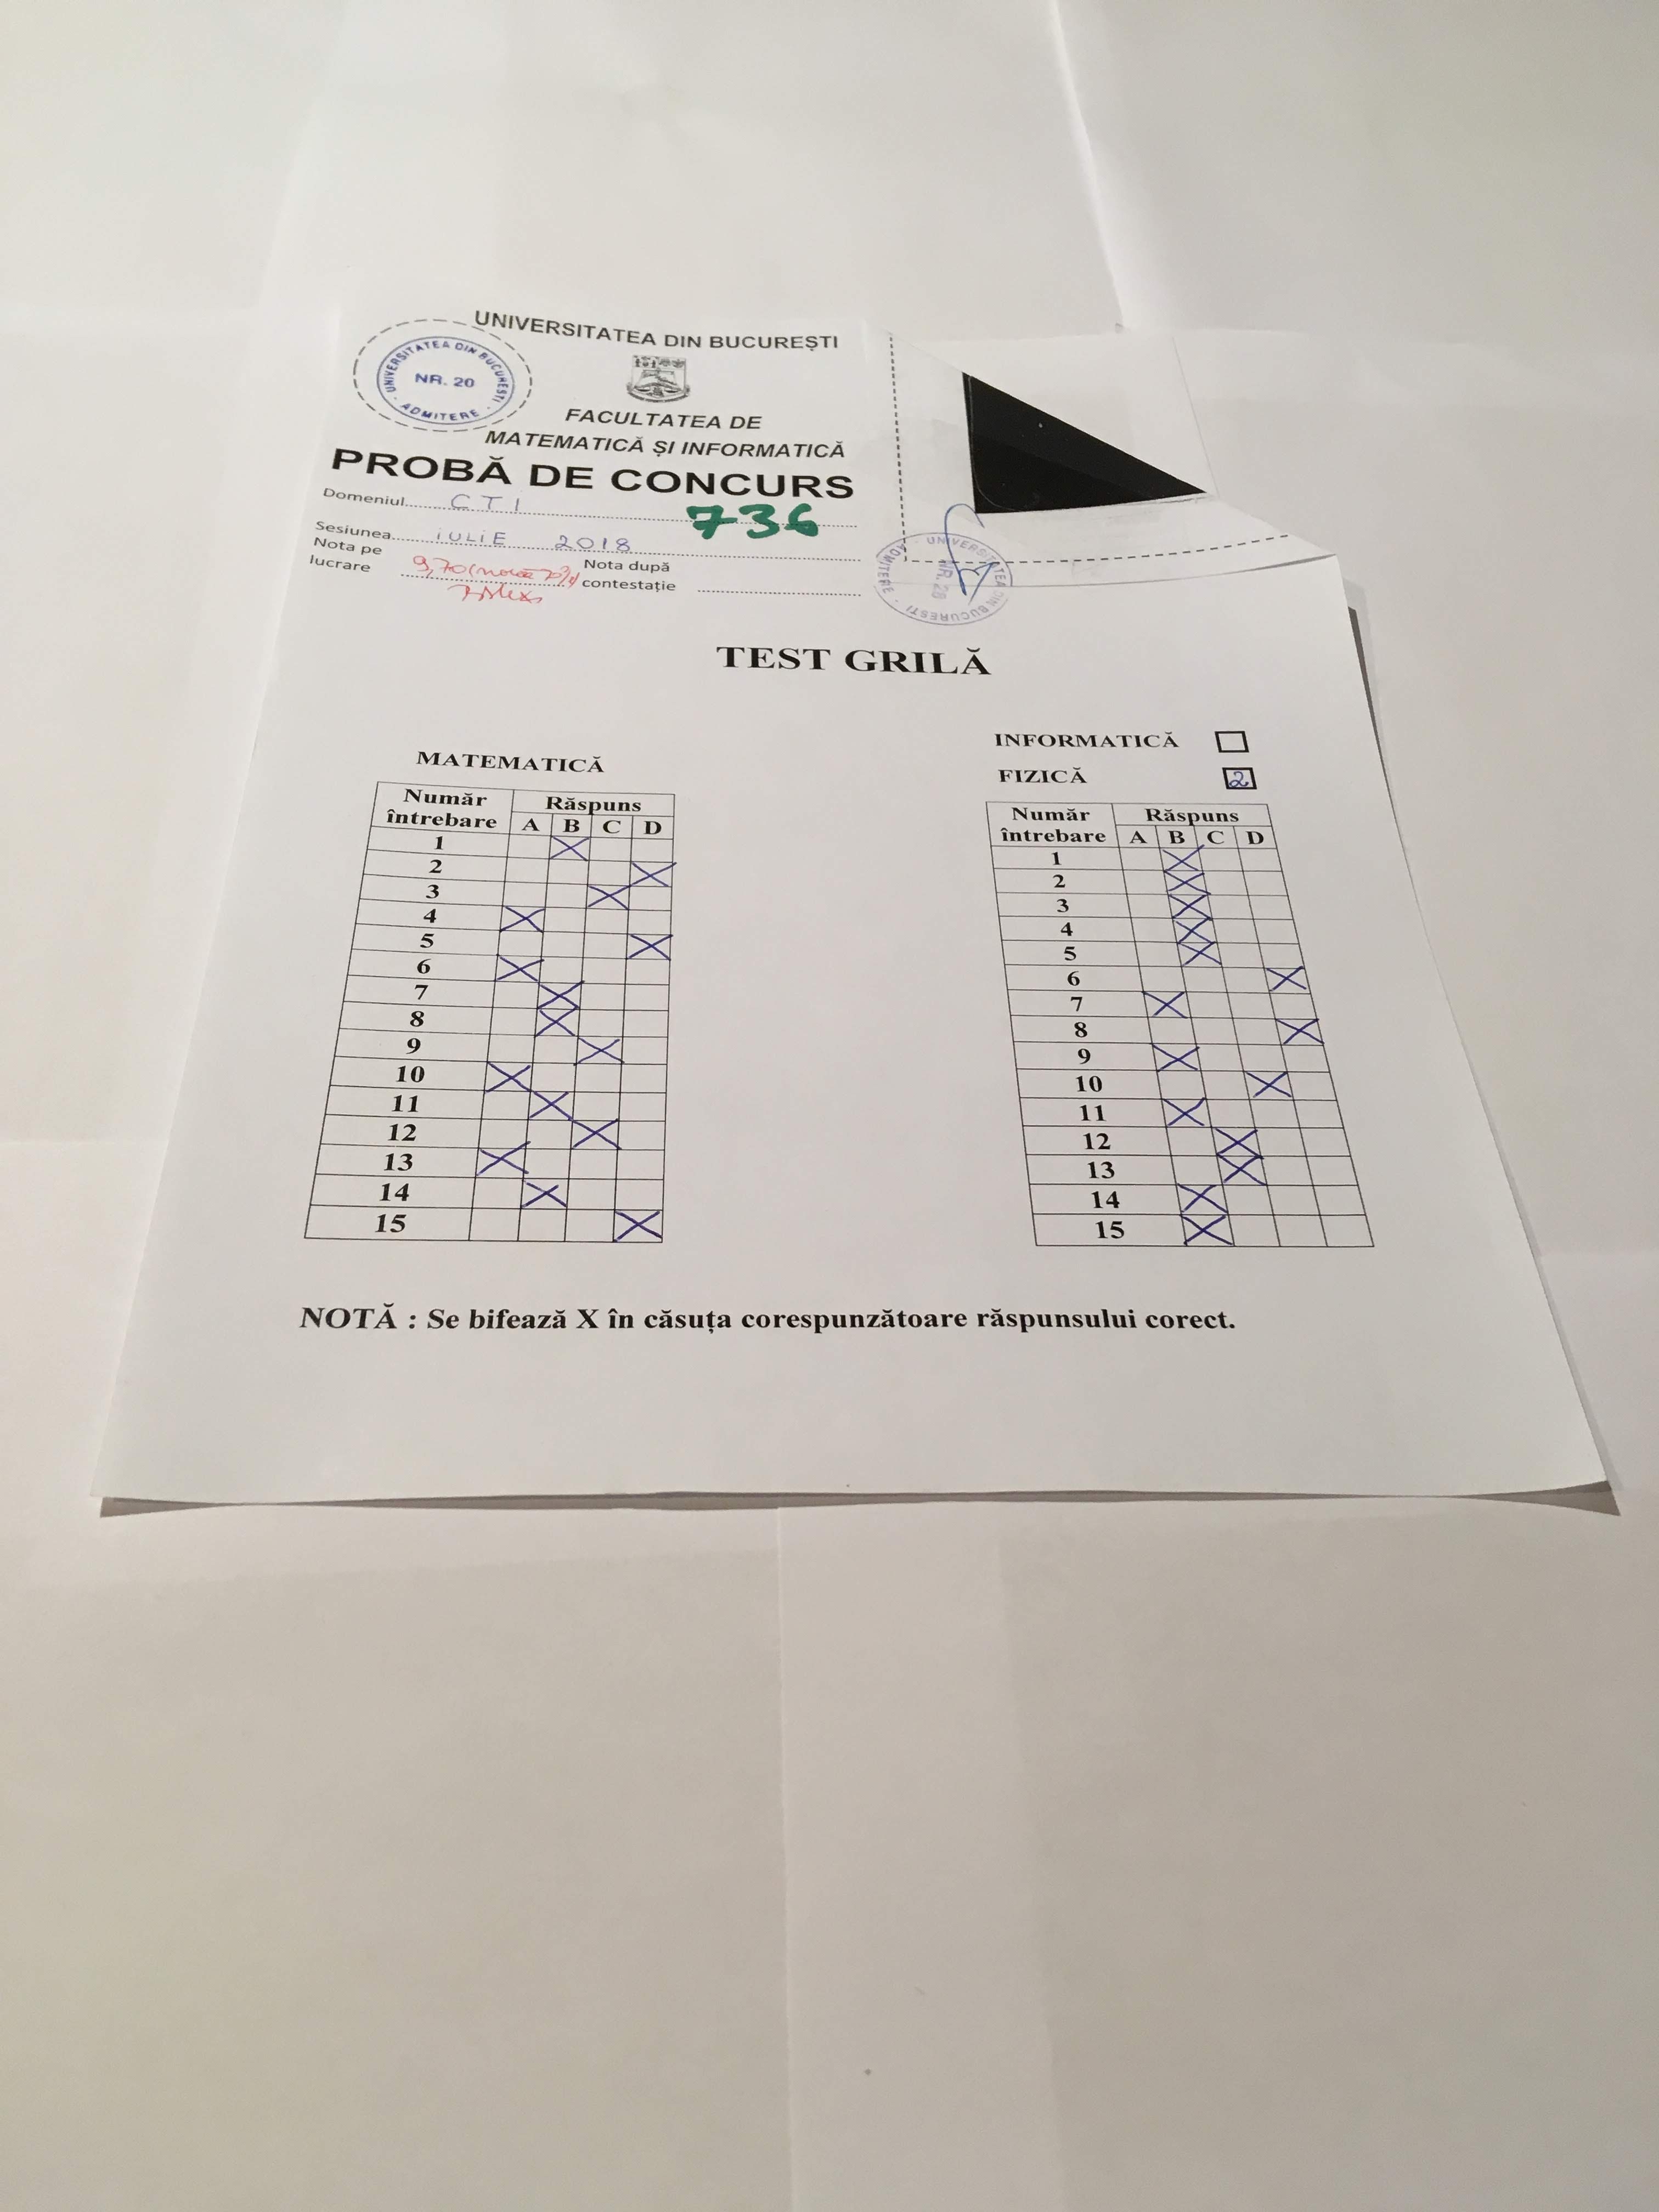 UNIVERSITATEA DIN BUCUREȘTI
UNIVERSITATEA DIN BUCUREȘTI
NR. 20
ADMITERE
FACULTATEA DE
MATEMATICĂ ȘI INFORMATICĂ
PROBĂ DE CONCURS
Domeniul CTI
736
Sesiunea IULIE 2018
Nota pe lucrare 9,70
Nota după contestație
UNIVERSITATEA DIN BUCUREȘTI
NR. 20
ADMITERE
TEST GRILĂ
MATEMATICĂ
Număr întrebare Răspuns
A B C D
1 X
2 X
3 X
4 X
5 X
6 X
7 X
8 X
9 X
10 X
11 X
12 X
13 X
14 X
15 X
INFORMATICĂ
FIZICĂ 2
Număr întrebare Răspuns
A B C D
1 X
2 X
3 X
4 X
5 X
6 X
7 X
8 X
9 X
10 X
11 X
12 X
13 X
14 X
15 X
NOTĂ : Se bifează X în căsuța corespunzătoare răspunsului corect.